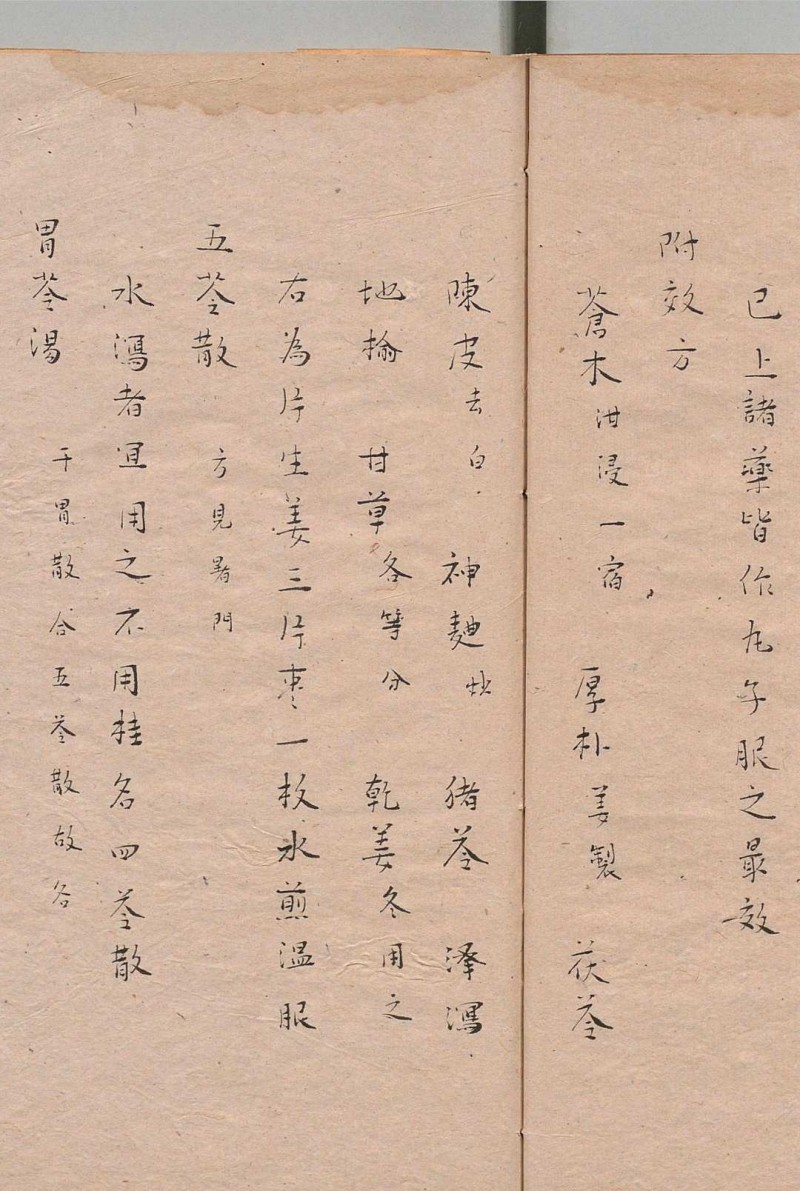 已上諸藥皆作丸子服之最效
附效方
蒼木泔浸一宿 厚朴姜製 茯苓
陳皮去白 神麯炒 猪苓 澤瀉
地榆 甘草各等分 乾姜冬用之
右為片生姜三片枣一枚水煎温服
五苓散 方見暑門
水瀉者宜用之不用桂名四苓散
胃苓湯 干胃散合五苓散故名